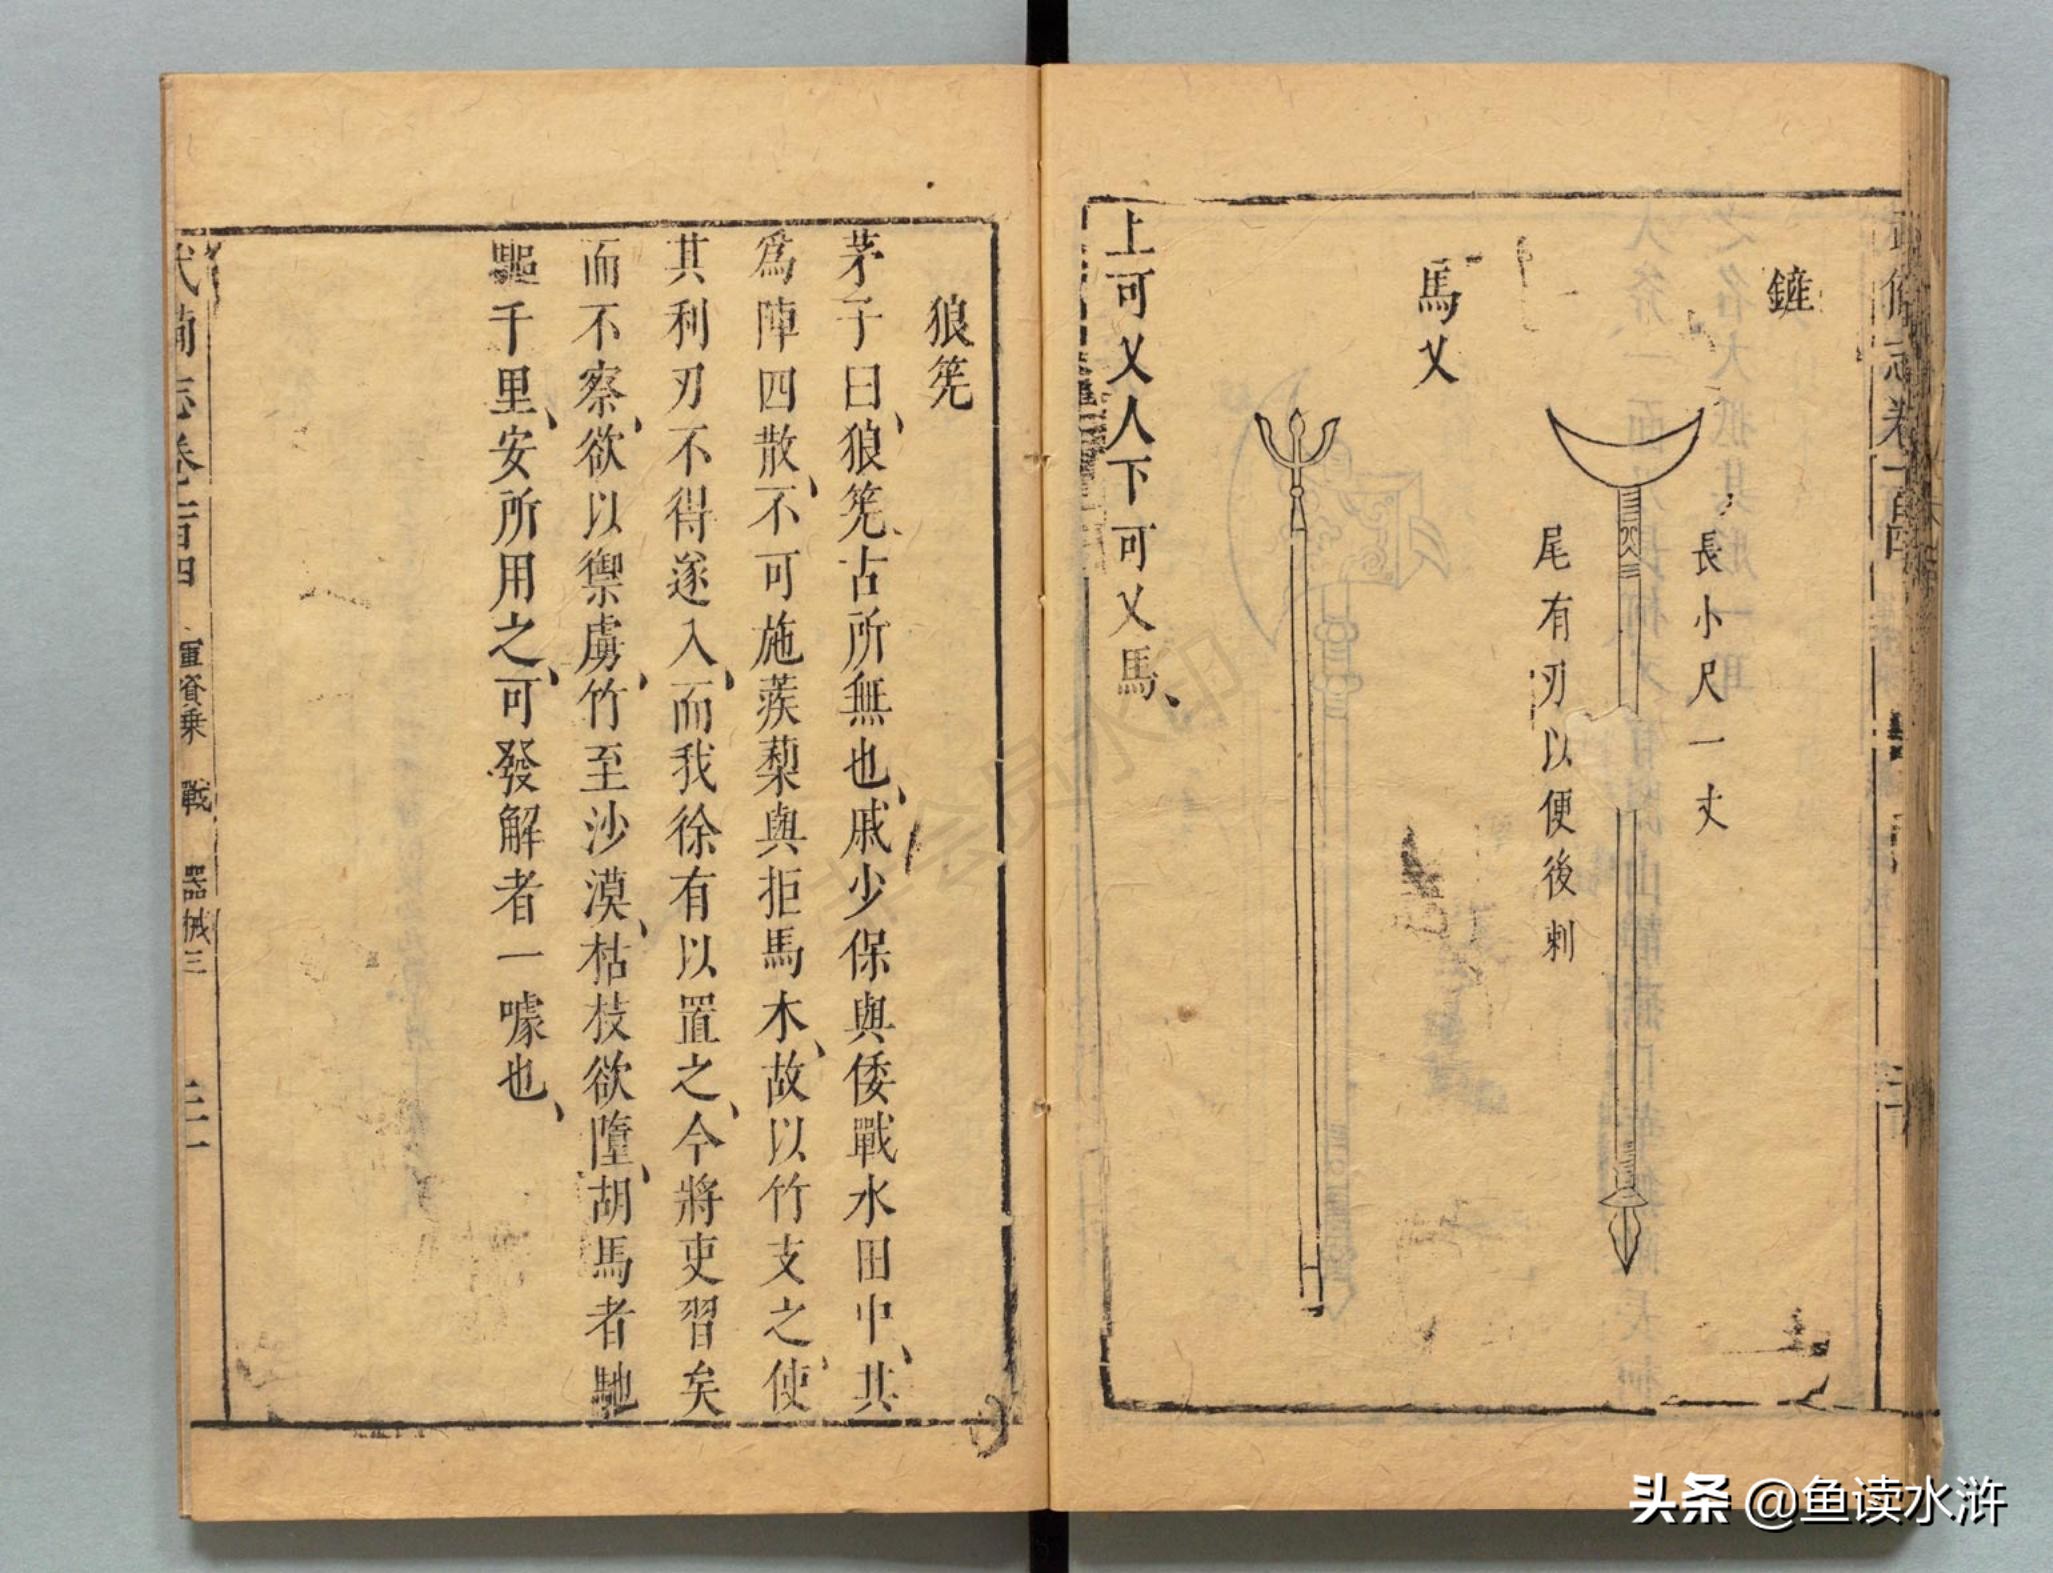 武備志卷一百四
鏟
長小尺一丈
尾有刃以便後刺
馬乂
上可乂人下可乂馬
狼筅
茅子曰狼筅古所無也戚少保與倭戰水田中其
為陣四散不可施蒺蔾與拒馬木故以竹支之使
其利刃不得遂入而我徐有以置之今將吏習矣
而不察欲以禦虜竹至沙漠枯枝欲墮胡馬者馳
驅千里安所用之可發解者一噱也
武備志卷一百四 軍資乘 戰 器械三
头条 @鱼读水浒